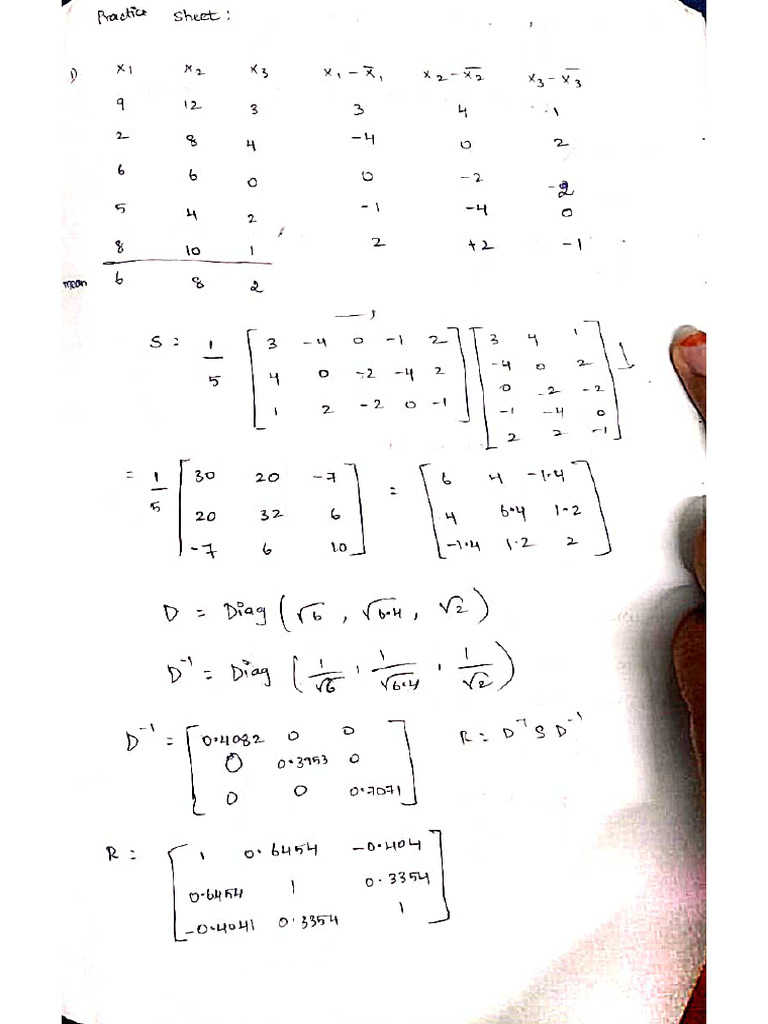 Practice Sheet:
1) x1 x2 x3 x1 - x̄1 x2 - x̄2 x3 - x̄3
9 12 3 3 4 1
2 8 4 -4 0 2
6 6 0 0 -2 -2
5 4 2 -1 -4 0
8 10 1 2 +2 -1
mean 6 8 2
S = 1/5 [3 -4 0 -1 2] [3 4 1]
[4 0 -2 -4 2] [-4 0 2]
[1 2 -2 0 -1] [0 -2 -2]
[-1 -4 0]
[2 2 -1]
= 1/5 [30 20 -7] = [6 4 -1.4]
[20 32 6] [4 6.4 1.2]
[-7 6 10] [-1.4 1.2 2]
D = Diag (√6, √6.4, √2)
D⁻¹ = Diag (1/√6, 1/√6.4, 1/√2)
D⁻¹ = [0.4082 0 0] R = D⁻¹ S D⁻¹
[0 0.3953 0]
[0 0 0.7071]
R = [1 0.6454 -0.404]
[0.6454 1 0.3354]
[-0.4041 0.3354 1]